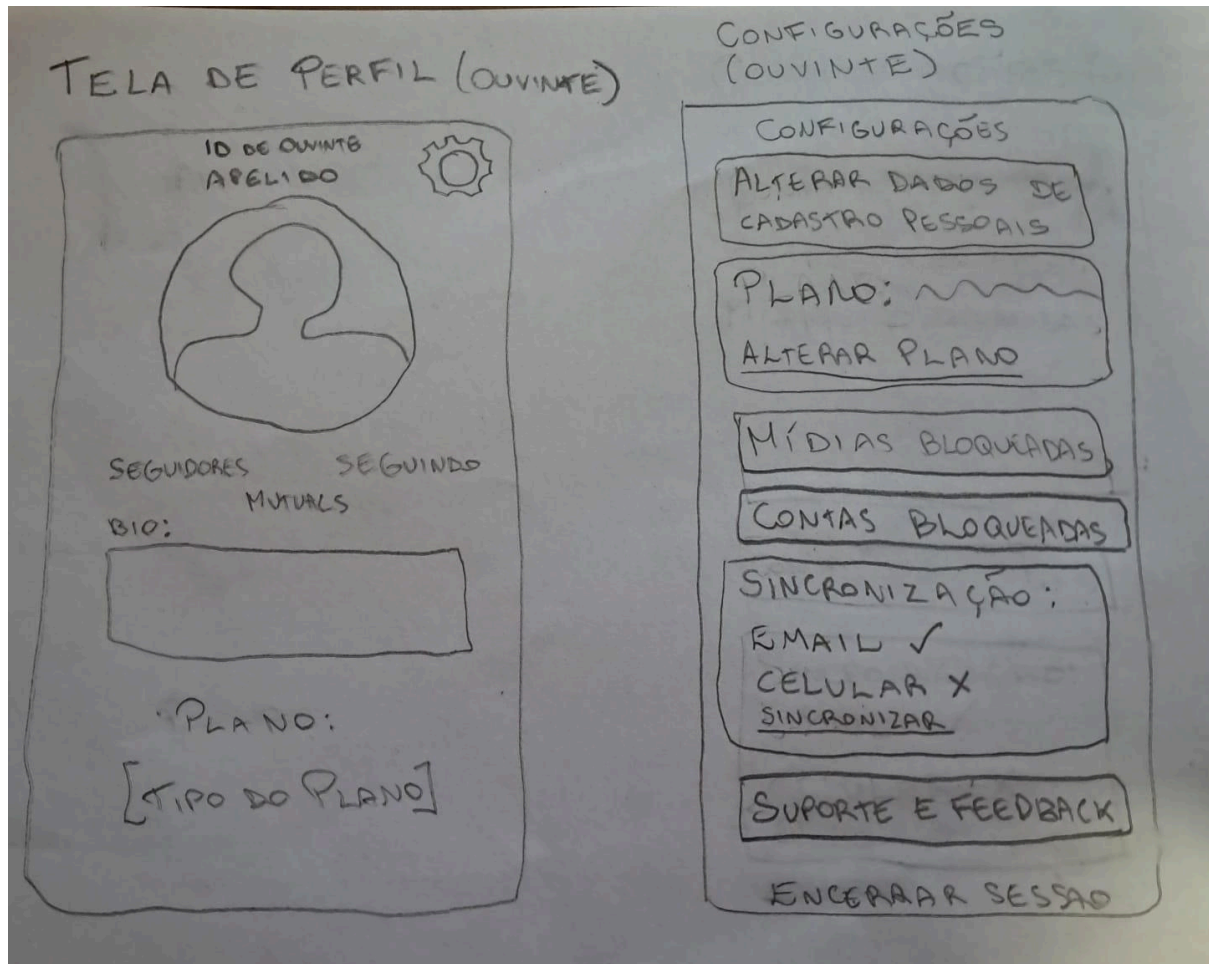 TELA DE PERFIL (OUVINTE)
ID DE OUVINTE
APELIDO
SEGUIDORES SEGUINDO
MUTUALS
BIO:
PLANO:
[TIPO DO PLANO]
CONFIGURAÇÕES
(OUVINTE)
CONFIGURAÇÕES
ALTERAR DADOS DE
CADASTRO PESSOAIS
PLANO:
ALTERAR PLANO
MÍDIAS BLOQUEADAS
CONTAS BLOQUEADAS
SINCRONIZAÇÃO:
EMAIL ✓
CELULAR X
SINCRONIZAR
SUPORTE E FEEDBACK
ENCERRAR SESSÃO